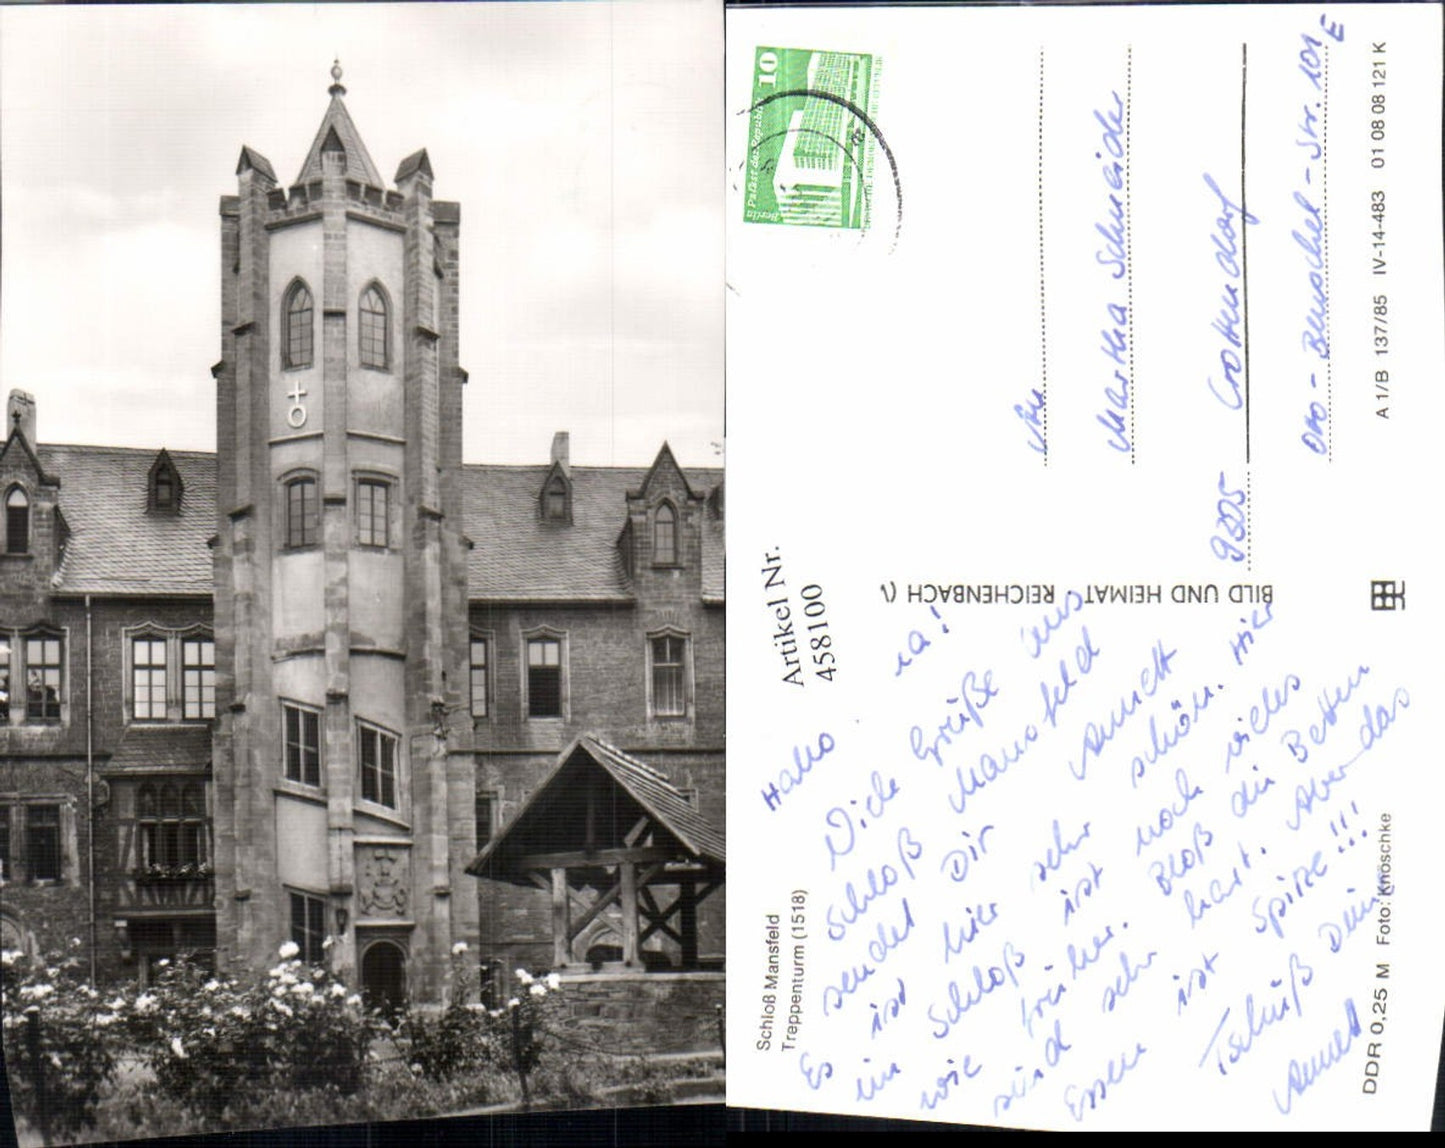 Schloß Mansfeld
Treppenturm (1518)
Hallo
Viele Grüße aus
Schloß Mansfeld
sendet Dir Annett
Es ist hier sehr schön. Hier
im Schloß ist noch vieles
wie früher. Bloß die Betten
sind sehr hart. Aber das
Essen ist Spitze!!!
Tschüß Deine
Annett
Artikel Nr.
458100
BILD UND HEIMAT REICHENBACH (V
10
Berlin Palast der Republik
An
Martha Schneider
9305 Crottendorf
Otto-Buschel-Str. 101 E
DDR 0,25 M Foto: Knoschke
A 1/B 137/85 IV-14-483 01 08 08 121 K